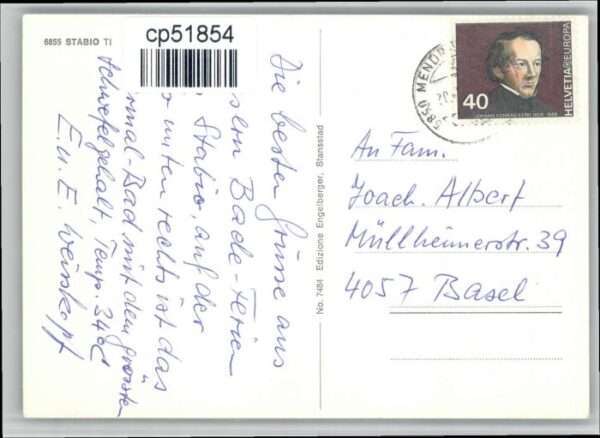 6855 STABIO TI
cp51854
Die besten Grüsse aus
sern Bade-Ferien
Stabio, auf der
r unten rechts ist das
rmal-Bad mit dem grössten
Schwefelgehalt, Temp. 34°C
E. u. E. Weisskopf
No. 7484 Edizione Engelberger, Stansstad
6850 MENDR
40
HELVETIA EUROPA
An Fam.
Joach. Albert
Müllheimerstr. 39
4057 Basel